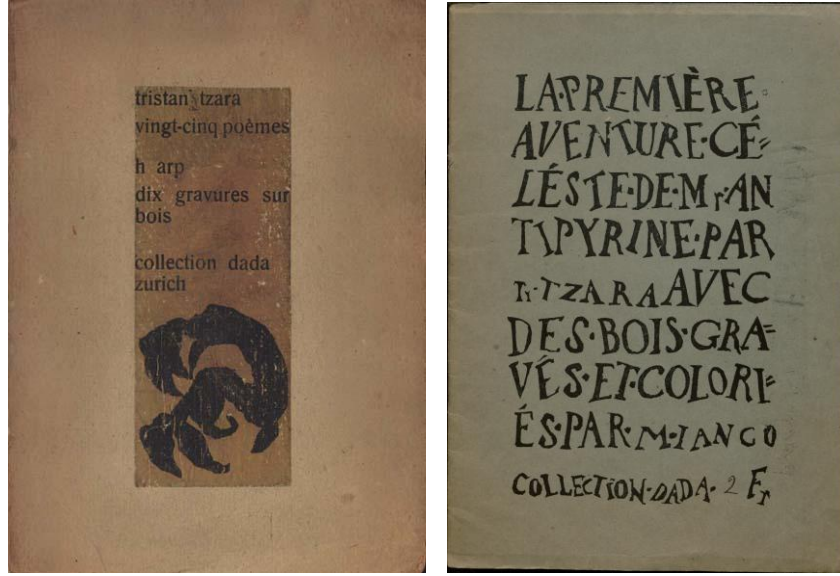 tristan tzara
vingt-cinq poèmes
h arp
dix gravures sur
bois
collection dada
zurich
LA·PREMIÈRE·
AVENTURE·CÉ=
LÉSTE·DE·Mr·AN
TIPYRINE·PAR
Tr·TZARA AVEC
DES·BOIS·GRA=
VÉS·ET·COLORI=
ÉS·PAR·M·IANCO
COLLECTION·DADA· 2 Fr